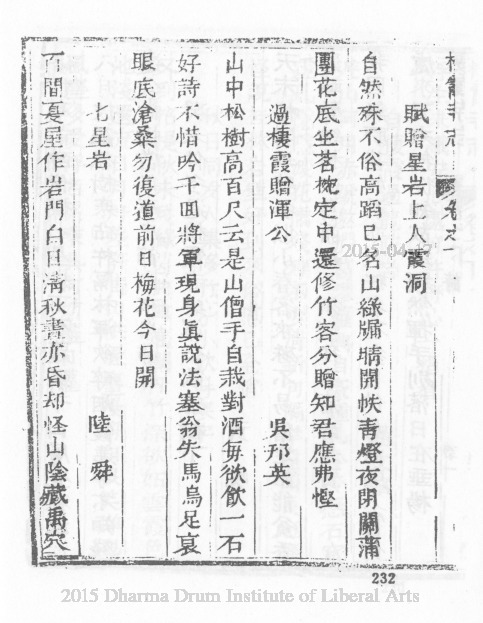 栖霞寺志 卷之
賦贈星岩上人霞洞
自然殊不俗高蹈已名山綠牖晴開帙青燈夜閉關蒲
團花底坐茗椀定中還修竹客分贈知君應弗慳
過棲霞贈渾公 吳邦英
山中松樹高百尺云是山僧手自栽對酒每欲飲一石
好詩不惜吟千回將軍現身眞說法塞翁失馬烏足哀
眼底滄桑勿復道前日梅花今日開
七星岩 陸舜
百間戛屋作岩門白日淸秋晝亦昏却怪山陰藏禹穴
232
2015-04-17
2015 Dharma Drum Institute of Liberal Arts